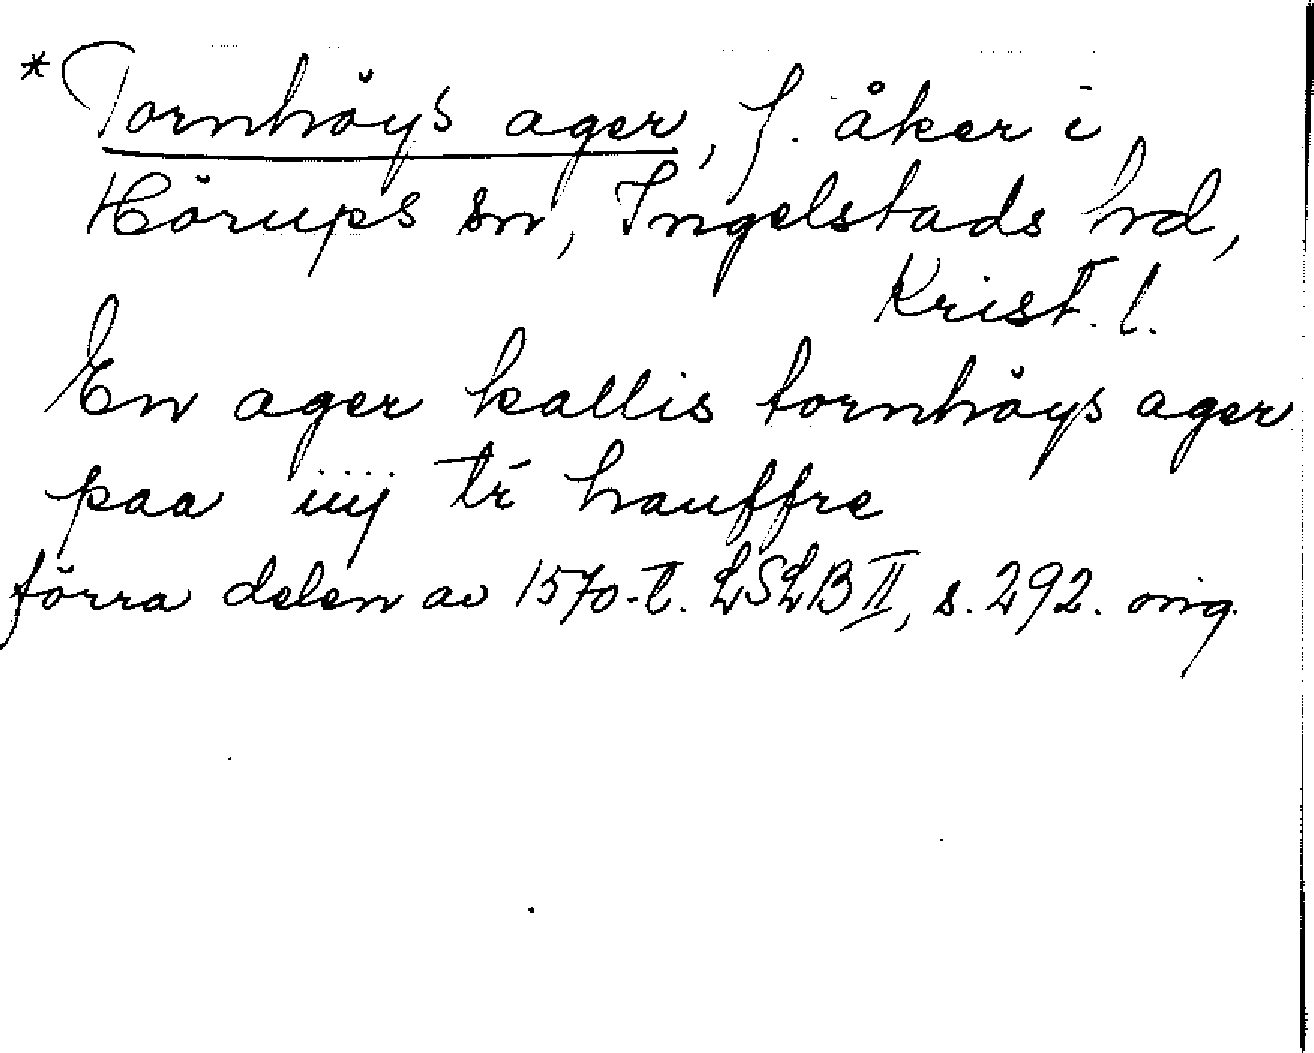 *Tornhöys ager, f. åker i
Hörups sn, Ingelstads hd,
Krist. l.
En ager kallis tornhöys ager
paa iiij tr hauffre
förra delen av 1570-t. LSLB II, s. 292. orig.